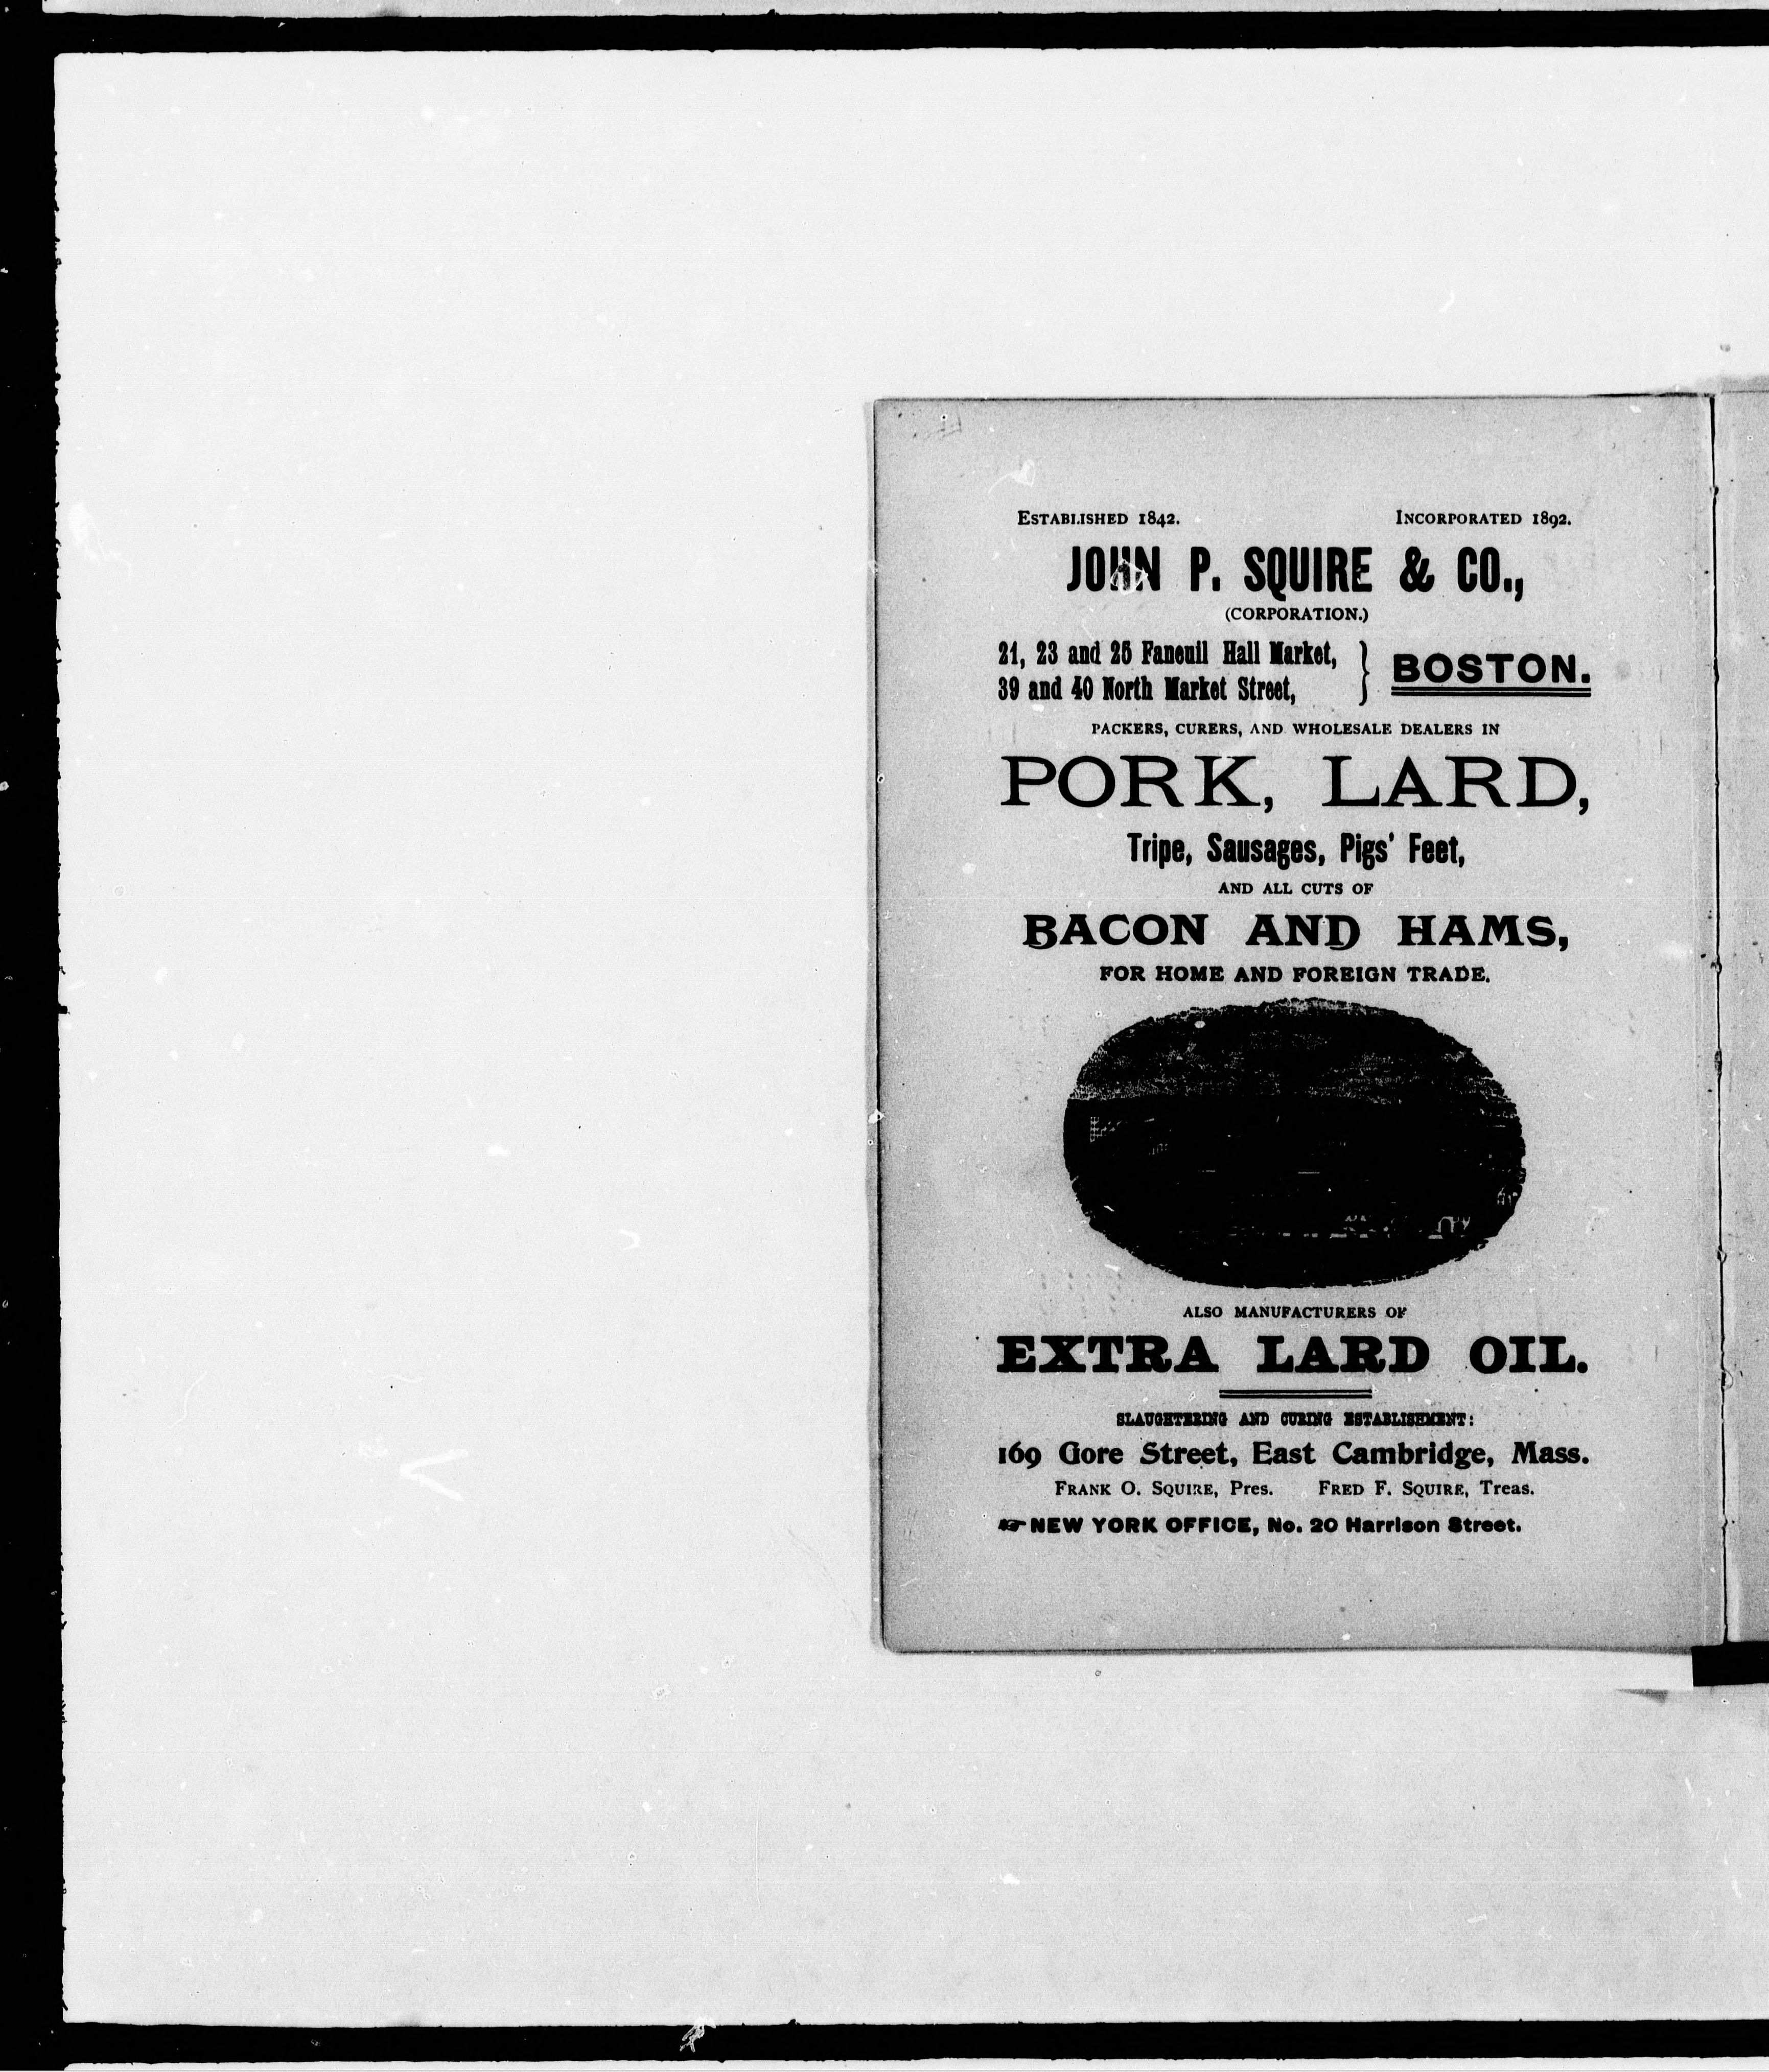 ESTABLISHED 1842. INCORPORATED 1892.
JOHN P. SQUIRE & CO.,
(CORPORATION.)
21, 23 and 25 Faneuil Hall Market,
39 and 40 North Market Street,
} BOSTON.
PACKERS, CURERS, AND WHOLESALE DEALERS IN
PORK, LARD,
Tripe, Sausages, Pigs' Feet,
AND ALL CUTS OF
BACON AND HAMS,
FOR HOME AND FOREIGN TRADE.
ALSO MANUFACTURERS OF
EXTRA LARD OIL.
SLAUGHTERING AND CURING ESTABLISHMENT:
169 Gore Street, East Cambridge, Mass.
FRANK O. SQUIRE, Pres. FRED F. SQUIRE, Treas.
☞ NEW YORK OFFICE, No. 20 Harrison Street.